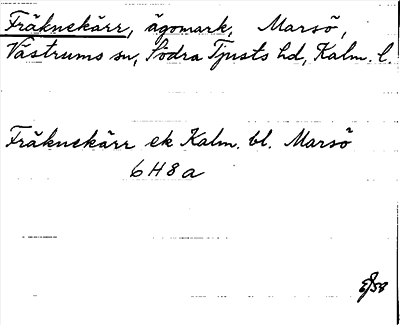 Fräknekärr, ägomark, Marsö,
Västrums sn, Södra Tjusts hd, Kalm. l.
Fräknekärr ek Kalm. bl. Marsö
6H8a